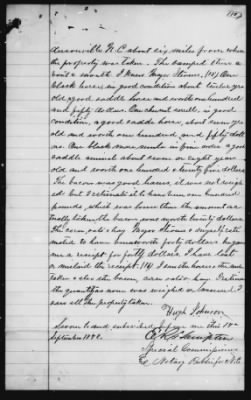 Ansonville N.C about six miles from where
the property was taken. The camped there a
week. I knew Major Stevens. (18) One
black horse in good condition about twelve years
old, good saddle horse and worth one hundred
and fifty dollars. One chesnut small, in good
condition, a good saddle horse, about seven years
old and worth one hundred and fifty dol-
lars. One black mare mule in fine order a good
saddle animal about seven or eight years
old and worth one hundred & twenty five dollars
The bacon was good hams, it was not weigh-
ed but I estimated it have been one hundred
pounds, which was less than the amount ac-
tually taken, the bacon was worth twenty dollars
The corn, oats & hay Major Stevens & myself esti-
mated to have been worth forty dollars he gave
me a receipt for forty dollars I have lost
or mislaid the receipt. (19) I saw the horses and mule
taken & also the bacon, corn oats & hay.
the quantities was weighed or measured I
saw all the property taken.
Hugh Johnson
Sworn to and subscribed before me this 12
September 1872.
Special Commissioner
& Notary Public for N.C.